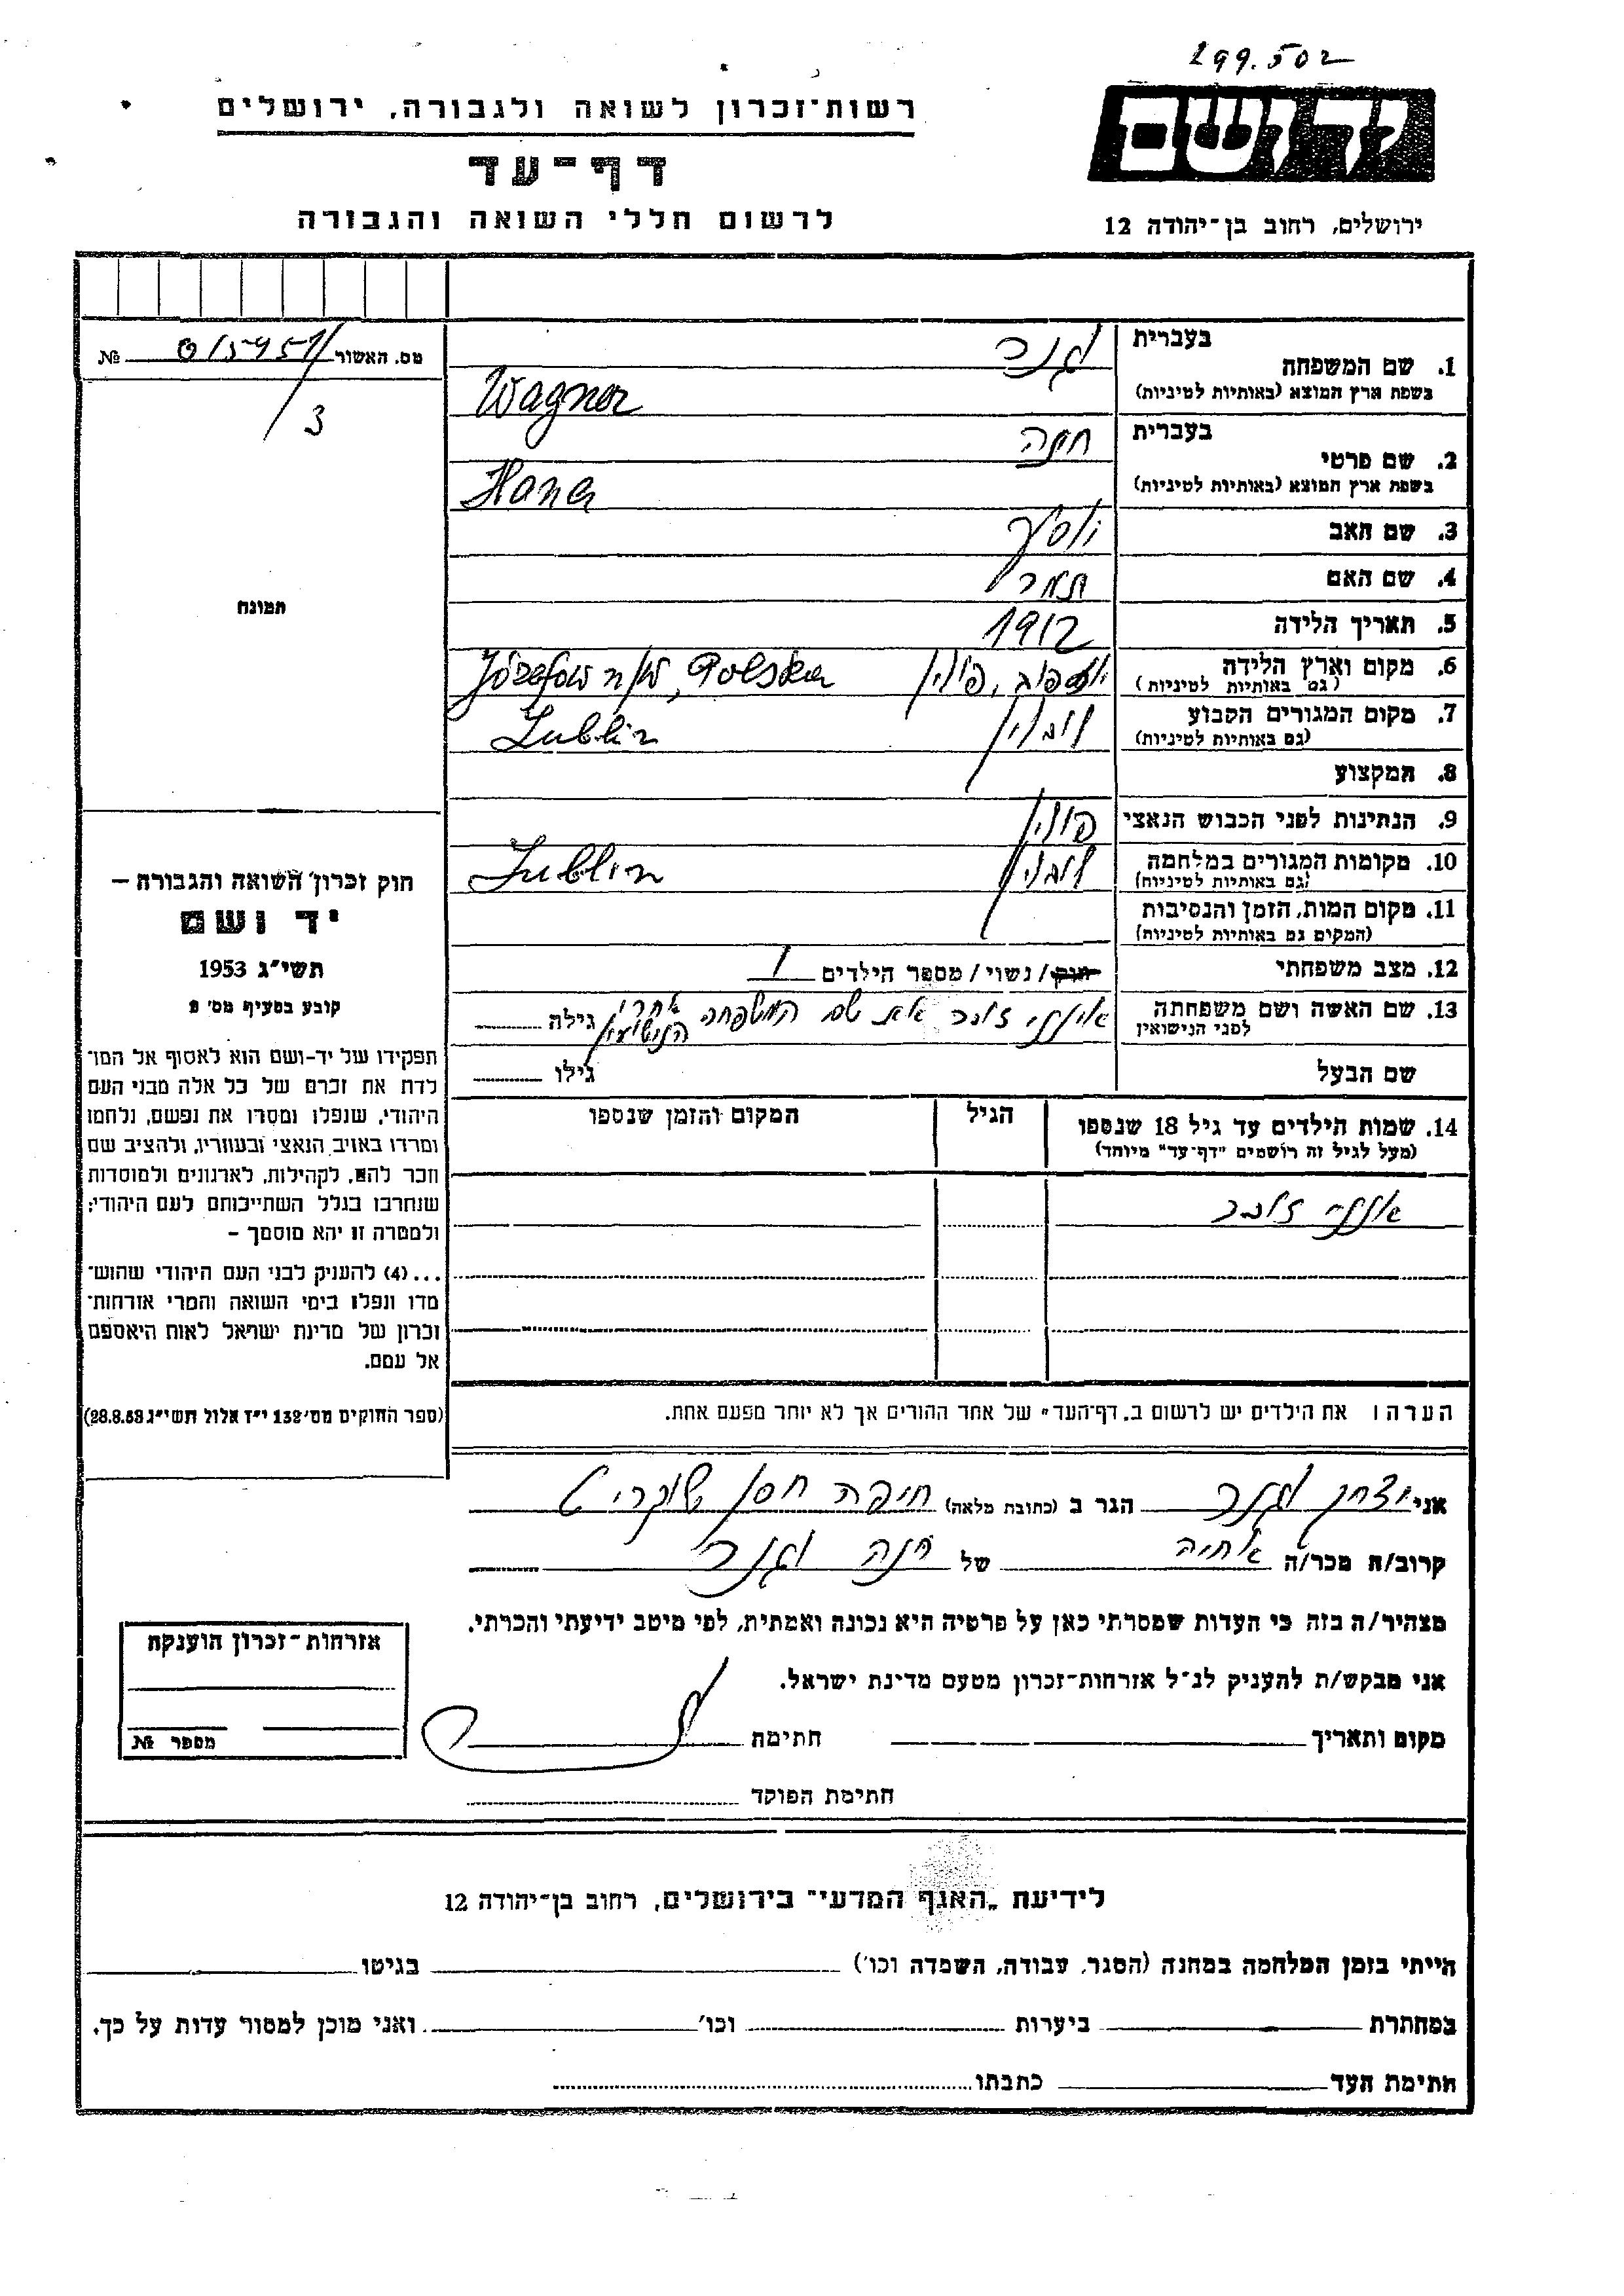 299.502
רשות־זכרון לשואה ולגבורה, ירושלים
יד ושם
דף־עד
לרשום חללי השואה והגבורה
ירושלים, רחוב בן־יהודה 12
מס. האשור № 015951/3
תמונה
חוק זכרון השואה והגבורה –
יד ושם
תשי״ג 1953
קובע בסעיף מס׳ 2
תפקידו של יד-ושם הוא לאסוף אל המו־
לדת את זכרם של כל אלה מבני העם
היהודי, שנפלו ומסרו את נפשם, נלחמו
ומרדו באויב הנאצי ובעוזריו, ולהציב שם
וזכר להם, לקהילות, לארגונים ולמוסדות
שנחרבו בגלל השתייכותם לעם היהודי;
ולמטרה זו יהא מוסמך –
...(4) להעניק לבני העם היהודי שהוש־
מדו ונפלו בימי השואה והמרי אזרחות־
זכרון של מדינת ישראל לאות היאספם
אל עמם.
(ספר החוקים מס׳ 132 י״ז אלול תשי״ג 28.8.53)
1. שם המשפחה
בעברית וגנר
בשפת ארץ המוצא (באותיות לטיניות) Wagner
2. שם פרטי
בעברית חנה
בשפת ארץ המוצא (באותיות לטיניות) Hana
3. שם האב יוסף
4. שם האם תמר
5. תאריך הלידה 1912
6. מקום וארץ הלידה
(גם באותיות לטיניות) יוזפוב, פולין Józefow n/W, Polska
7. מקום המגורים הקבוע
(גם באותיות לטיניות) לובלין Lublin
8. המקצוע
9. הנתינות לפני הכבוש הנאצי פולין
10. מקומות המגורים במלחמה
(גם באותיות לטיניות) לובלין Lublin
11. מקום המות, הזמן והנסיבות
(המקום גם באותיות לטיניות)
12. מצב משפחתי רווק/נשוי/מספר הילדים 1
13. שם האשה ושם משפחתה
לפני הנישואין את שם המשפחה אחרי הנישואין גילה
שם הבעל גילו
14. שמות הילדים עד גיל 18 שנספו הגיל המקום והזמן שנספו
(מעל לגיל זה רושמים "דף־עד" מיוחד)
הערה: את הילדים יש לרשום ב„דף־העד" של אחד ההורים אך לא יותר מפעם אחת.
אני יצחק וגנר הגר ב (כתובת מלאה) חיפה חסן שוקרי
קרוב/ה מכר/ה אחיה של חנה וגנר
מצהיר/ה בזה כי העדות שמסרתי כאן על פרטיה היא נכונה ואמתית, לפי מיטב ידיעתי והכרתי.
אני מבקש/ת להעניק לנ״ל אזרחות־זכרון מטעם מדינת ישראל.
מקום ותאריך חתימה
חתימת הפוקד
אזרחות־זכרון הוענקה
מספר №
לידיעת „האגף המדעי" בירושלים, רחוב בן־יהודה 12
הייתי בזמן המלחמה במחנה (הסגר, עבודה, השמדה וכו׳) בגיטו
במחתרת ביערות וכו׳ ואני מוכן למסור עדות על כך.
חתימת העד כתבתו